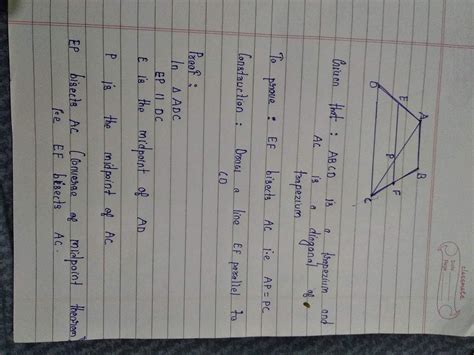 classmate
Date
Page
A
B
E
P
F
D
C
Given that : ABCD is a trapezium and
AC is a diagonal of
trapezium
To prove : EF bisects AC i.e AP = PC
Construction : Draw a line EF parallel to
CD
Proof :
In △ ADC
EP || DC
E is the midpoint of AD
P is the midpoint of AC
EP bisects AC (Converse of midpoint theorem)
i.e EF bisects AC.